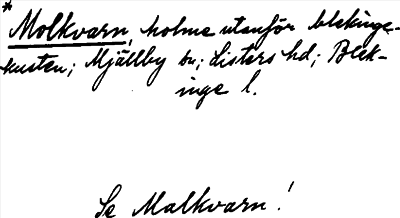 * Molkvarn, holme utanför blekinge-
kusten; Mjällby sn; Listers hd; Blek-
inge l.
Se Malkvarn!